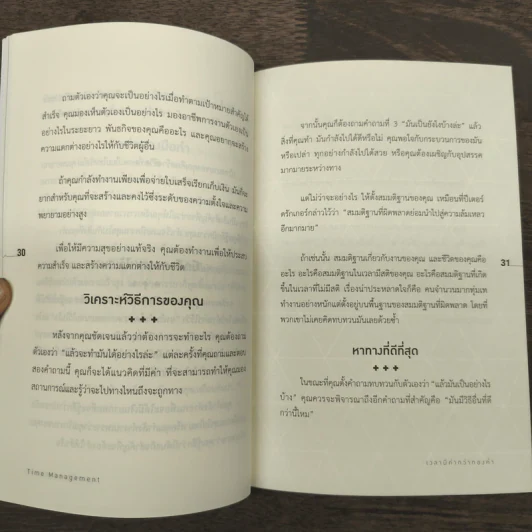 ถามตัวเองว่าคุณจะเป็นอย่างไรเมื่อทำตามเป้าหมายสำคัญได้
สำเร็จ คุณมองเห็นตัวเองเป็นอย่างไร มองอาชีพการงานตัวเองเป็น
อย่างไรในระยะยาว พันธกิจของคุณคืออะไร และคุณอยากจะสร้าง
ความแตกต่างอย่างไรให้กับชีวิตผู้อื่น
ถ้าคุณกำลังทำงานเพียงเพื่อจ่ายใบเสร็จเรียกเก็บเงิน มันก็จะ
ยากสำหรับคุณที่จะสร้างและคงไว้ซึ่งระดับของความตั้งใจและความ
พยายามอย่างสูง
เพื่อให้มีความสุขอย่างแท้จริง คุณต้องทำงานเพื่อให้ประสบ
ความสำเร็จ และสร้างความแตกต่างให้กับชีวิต
30
วิเคราะห์วิธีการของคุณ
หลังจากคุณชัดเจนแล้วว่าต้องการจะทำอะไร คุณต้องถาม
ตัวเองว่า "แล้วจะทำมันได้อย่างไรล่ะ" แต่ละครั้งที่คุณถามและตอบ
สองคำถามนี้ คุณก็จะได้แนวคิดที่มีค่า ที่จะสามารถทำให้คุณมอง
สถานการณ์และรู้ว่าจะไปทางไหนถึงจะถูกทาง
Time Management
จากนั้นคุณก็ต้องถามคำถามที่ 3 "มันเป็นยังไงบ้างล่ะ" แล้ว
สิ่งที่คุณทำ มันกำลังไปได้ดีหรือไม่ คุณพอใจกับกระบวนการของมัน
หรือเปล่า ทุกอย่างกำลังไปได้สวย หรือคุณต้องเผชิญกับอุปสรรค
มากมายระหว่างทาง
แต่ไม่ว่าจะอย่างไร ให้ตั้งสมมติฐานของคุณ เหมือนที่ปีเตอร์
ดรักเกอร์กล่าวไว้ว่า "สมมติฐานที่ผิดพลาดย่อมนำไปสู่ความล้มเหลว
อีกมากมาย"
ถ้าเช่นนั้น สมมติฐานเกี่ยวกับงานของคุณ และชีวิตของคุณคือ
อะไร อะไรคือสมมติฐานในเวลามีสติของคุณ อะไรคือสมมติฐานที่เกิด
ขึ้นในเวลาที่ไม่มีสติ เรื่องน่าประหลาดใจก็คือ คนจำนวนมากทุ่มเท
ทำงานอย่างหนักแต่ตั้งอยู่บนพื้นฐานของสมมติฐานที่ผิดพลาด โดยที่
พวกเขาไม่เคยคิดทบทวนมันเลยด้วยซ้ำ
31
หาทางที่ดีที่สุด
ในขณะที่คุณตั้งคำถามทบทวนกับตัวเองว่า "แล้วมันเป็นอย่างไร
บ้าง" คุณควรจะพิจารณาถึงอีกคำถามที่สำคัญคือ "มันมีวิธีอื่นที่ดี
กว่านี้ไหม"
เวลามีค่ากว่าทองคำ